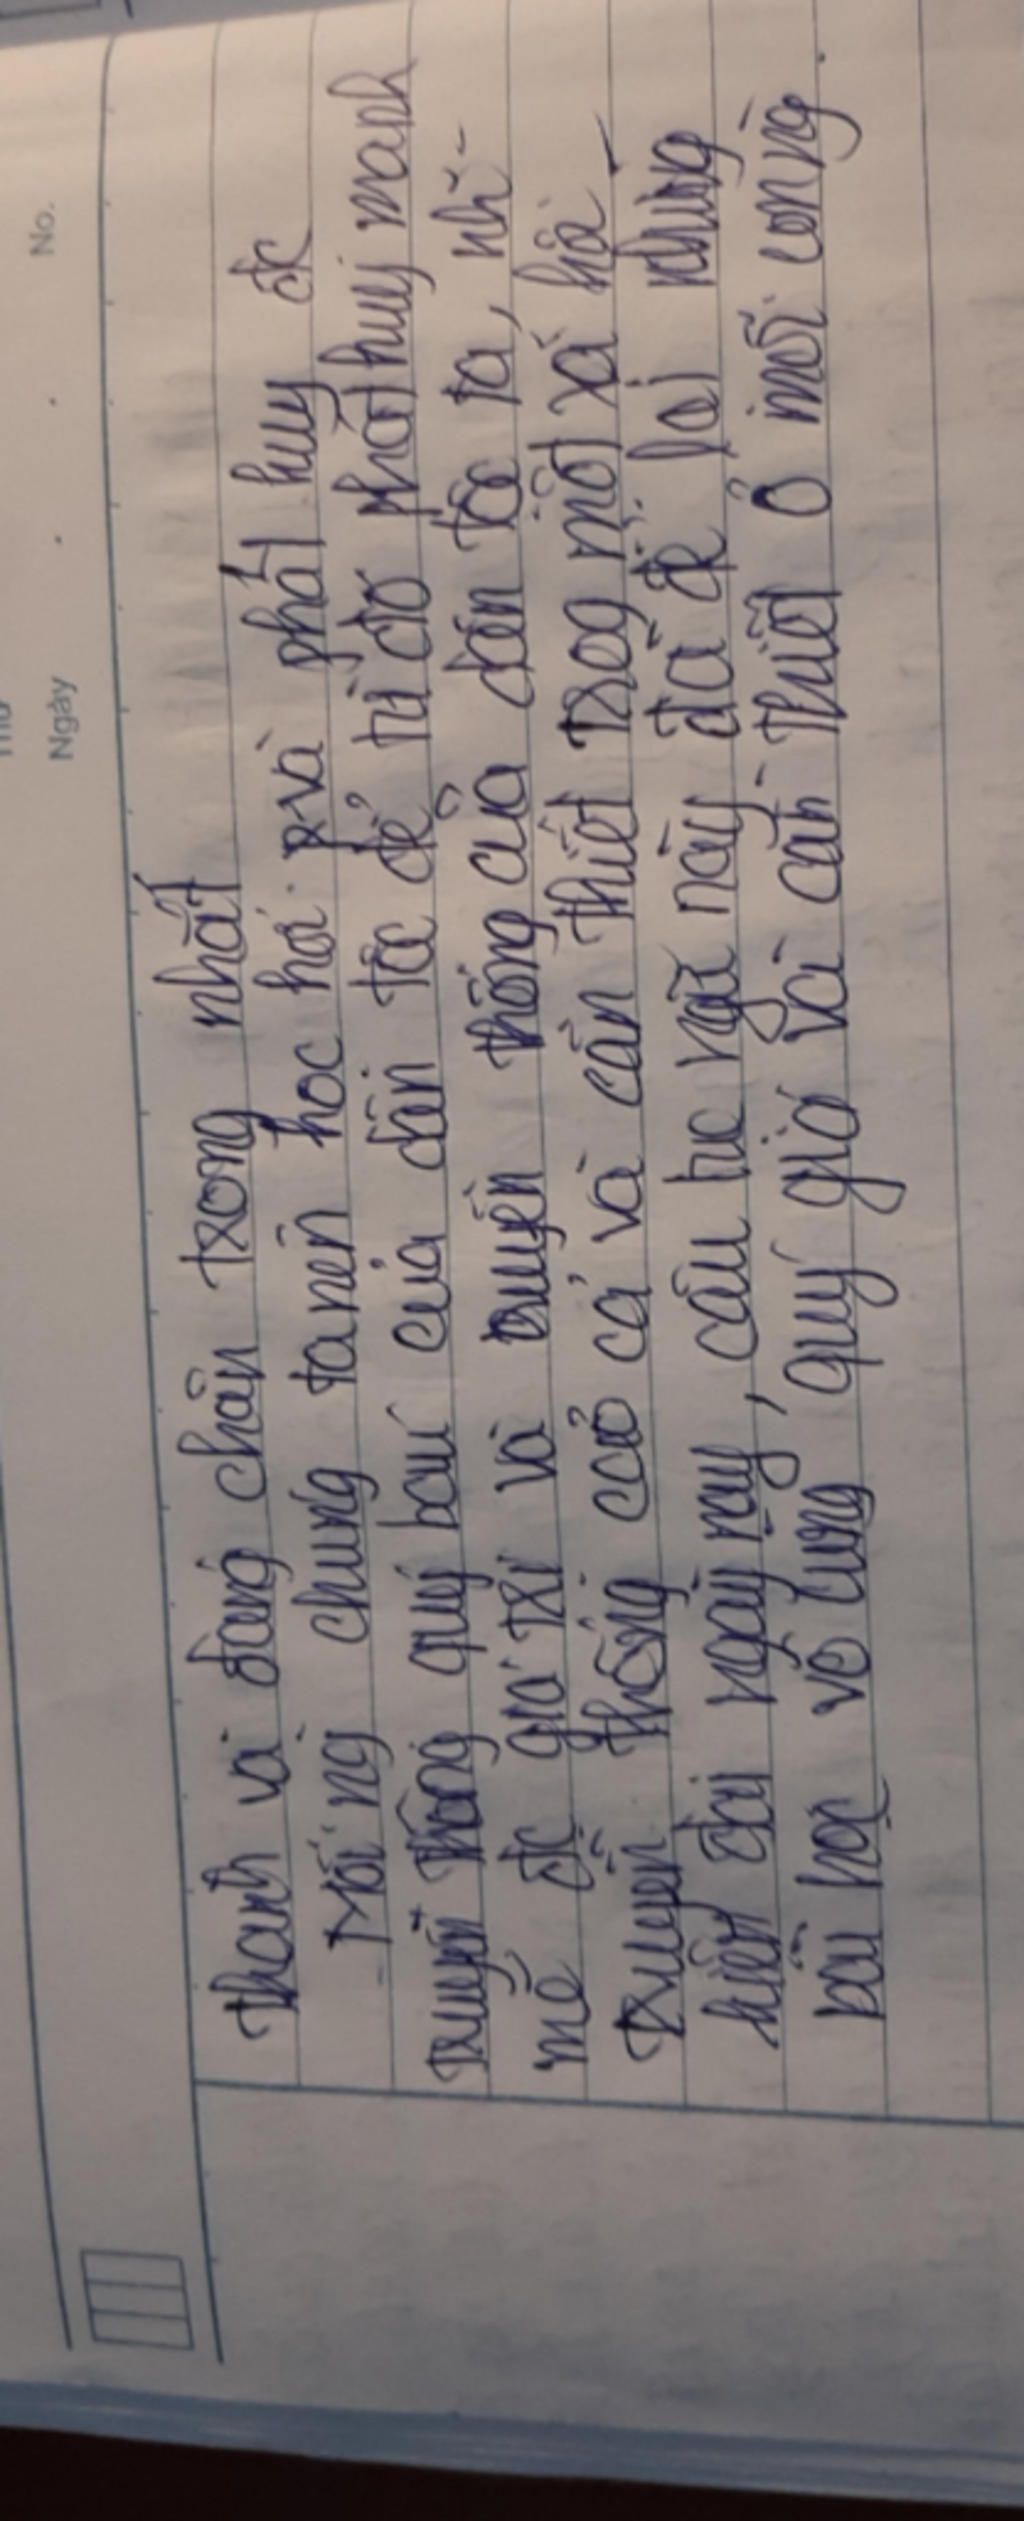 No.
Ngày
thành và đáng chân trọng nhất
- Mỗi ng chúng ta nên học hỏi và phát huy đc
truyền thống quý báu của dân tộc để từ đó phát huy mạnh
mẽ đc giá trị và truyền thống của dân tộc ta, nh~
truyền thống cao cả và cần thiết trog một xã hội
hiện đại ngày nay, câu tục ngữ này đã để lại những
bài học vô cùng quý giá và cần thiết ở mỗi con ng.